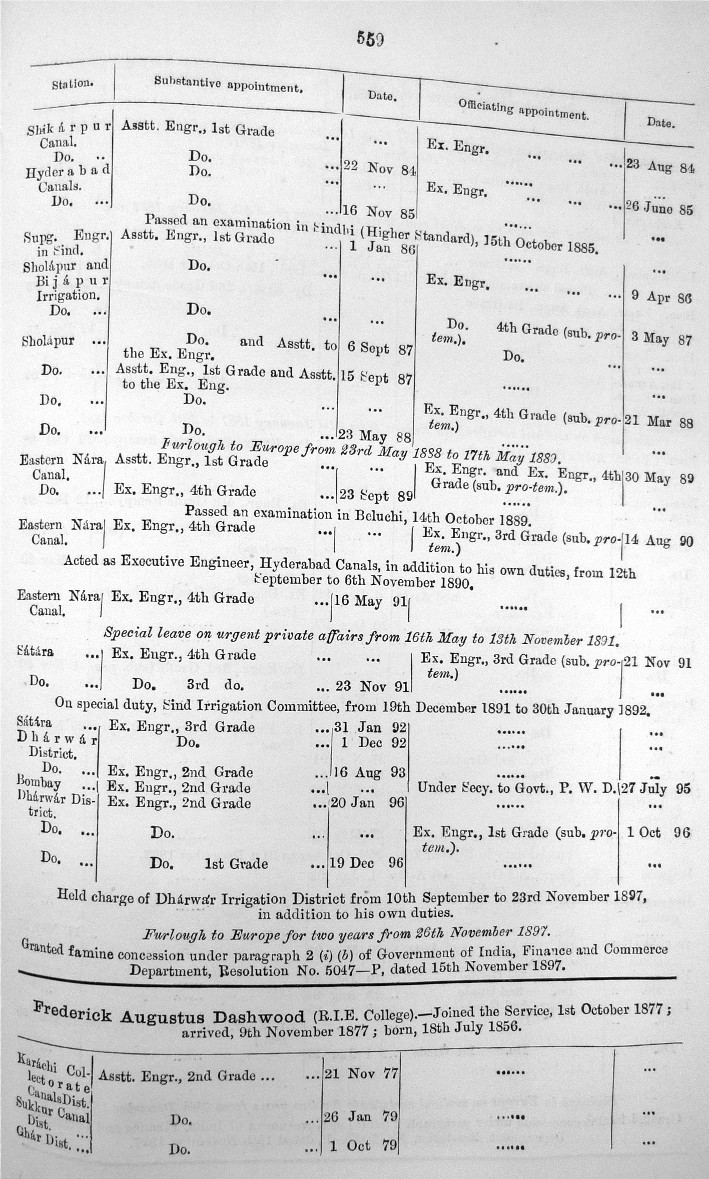 559
Station. Substantive appointment. Date. Officiating appointment. Date.
Shikárpur Canal. Asstt. Engr., 1st Grade ... ... Ex. Engr. ... ... ... 23 Aug 84
Do. .. Do. ... 22 Nov 84 ...... ...
Hyderabad Canals. Do. ... ... Ex. Engr. ... ... ... 26 June 85
Do. ... Do. 16 Nov 85 ...... ...
Passed an examination in Sindhi (Higher Standard), 15th October 1885.
Supg. Engr. in Sind. Asstt. Engr., 1st Grade ... 1 Jan 86 ...... ...
Sholápur and Bijápur Irrigation. Do. ... ... Ex. Engr. ... ... ... 9 Apr 86
Do. ... Do. ... ... Do. 4th Grade (sub. pro-tem.). 3 May 87
Sholápur ... Do. and Asstt. to the Ex. Engr. 6 Sept 87 Do. ... ...
Do. ... Asstt. Eng., 1st Grade and Asstt. to the Ex. Eng. 15 Sept 87 ...... ...
Do. ... Do. ... ... Ex. Engr., 4th Grade (sub. pro-tem.) 21 Mar 88
Do. ... Do. ... 23 May 88 ...... ...
Furlough to Europe from 23rd May 1888 to 17th May 1889.
Eastern Nára Canal. Asstt. Engr., 1st Grade ... ... Ex. Engr. and Ex. Engr., 4th Grade (sub. pro-tem.). 30 May 89
Do. ... Ex. Engr., 4th Grade ... 23 Sept 89 ...... ...
Passed an examination in Beluchi, 14th October 1889.
Eastern Nára Canal. Ex. Engr., 4th Grade ... ... Ex. Engr., 3rd Grade (sub. pro-tem.) 14 Aug 90
Acted as Executive Engineer, Hyderabad Canals, in addition to his own duties, from 12th
September to 6th November 1890.
Eastern Nára Canal. Ex. Engr., 4th Grade ... 16 May 91 ...... ...
Special leave on urgent private affairs from 16th May to 13th November 1891.
Sátára ... Ex. Engr., 4th Grade ... ... Ex. Engr., 3rd Grade (sub. pro-tem.) 21 Nov 91
Do. ... Do. 3rd do. ... 23 Nov 91 ...... ...
On special duty, Sind Irrigation Committee, from 19th December 1891 to 30th January 1892.
Sátára ... Ex. Engr., 3rd Grade ... 31 Jan 92 ...... ...
Dhárwár District. Do. ... 1 Dec 92 ...... ...
Do. ... Ex. Engr., 2nd Grade ... 16 Aug 93 ...... ...
Bombay ... Ex. Engr., 2nd Grade ... ... Under Secy. to Govt., P. W. D. 27 July 95
Dhárwár District. Ex. Engr., 2nd Grade ... 20 Jan 96 ...... ...
Do. ... Do. ... ... Ex. Engr., 1st Grade (sub. pro-tem.). 1 Oct 96
Do. ... Do. 1st Grade ... 19 Dec 96 ...... ...
Held charge of Dhárwár Irrigation District from 10th September to 23rd November 1897,
in addition to his own duties.
Furlough to Europe for two years from 26th November 1897.
Granted famine concession under paragraph 2 (i) (b) of Government of India, Finance and Commerce
Department, Resolution No. 5047—P, dated 15th November 1897.
Frederick Augustus Dashwood (R.I.E. College).—Joined the Service, 1st October 1877;
arrived, 9th November 1877; born, 18th July 1856.
Karáchi Collectorate Canals Dist. Asstt. Engr., 2nd Grade ... ... 21 Nov 77 ...... ...
Sukkur Canal Dist. ... Do. ... 26 Jan 79 ...... ...
Ghár Dist. ... Do. ... 1 Oct 79 ...... ...